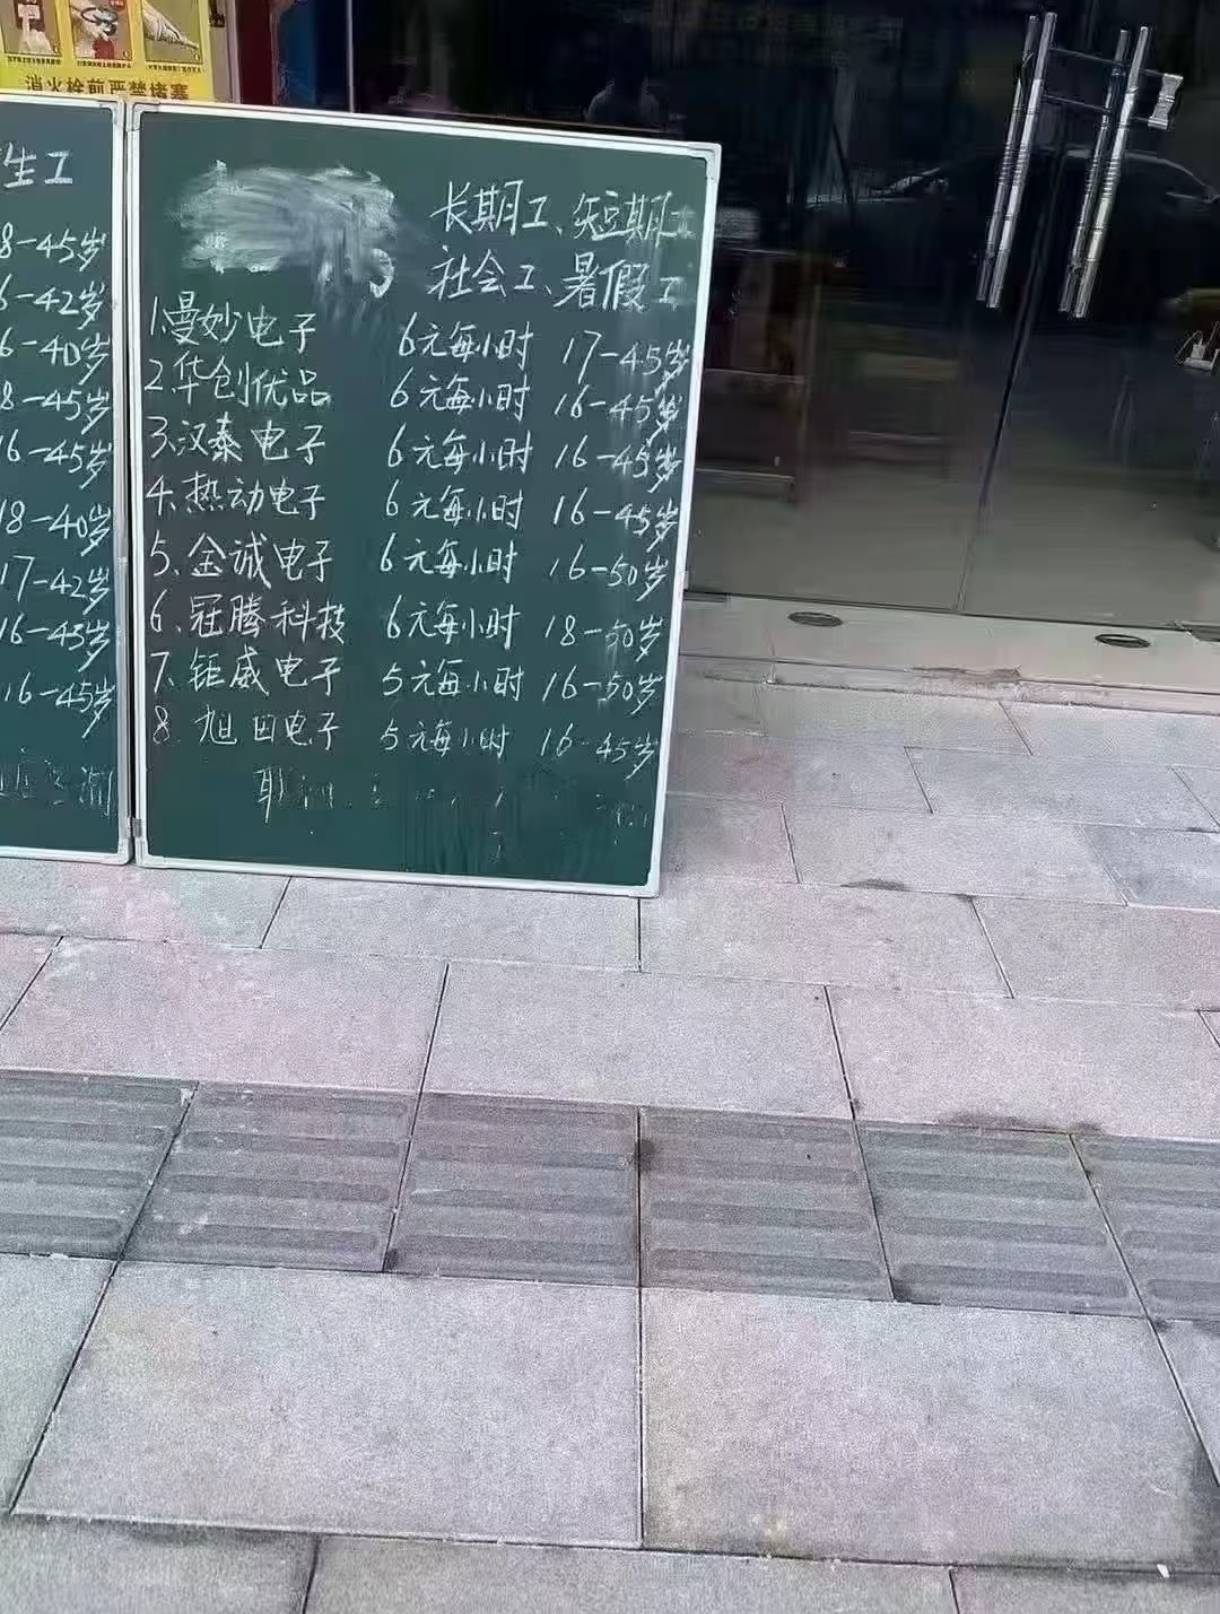 消火栓前严禁堵塞
生工
8-45岁
6-42岁
6-40岁
8-45岁
16-45岁
18-40岁
17-42岁
16-45岁
16-45岁
长期工、短期工
社会工、暑假工
1.曼妙电子 6元每小时 17-45岁
2华创优品 6元每小时 16-45岁
3.汉泰电子 6元每小时 16-45岁
4.热动电子 6元每小时 16-45岁
5、金诚电子 6元每小时 16-50岁
6、冠腾科技 6元每小时 18-50岁
7、钜威电子 5元每小时 16-50岁
8. 旭田电子 5元每小时 16-45岁